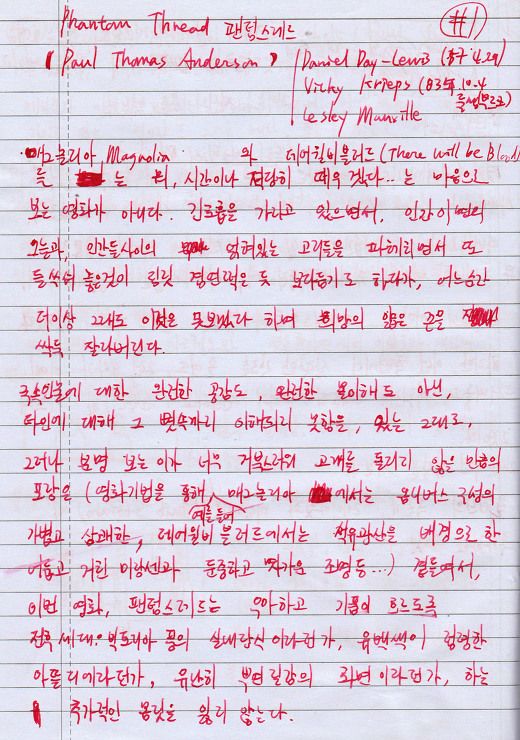 Phantom Thread 팬텀스레드 #1
(Paul Thomas Anderson) Daniel Day-Lewis (57 4.29)
Vicky Krieps (83年.10.4
룩셈부르크)
Lesley Manville
매그놀리아, Magnolia 와 데어윌비블러드 (There will be Blood)
를 는 뭐, 시간이나 적당히 때우겠다.. 는 마음으로
보는 영화가 아니다. 긴 호흡을 가라고 있으면서, 인간이면의
오늘과, 인간들사이의 얽혀있는 고리들을 파헤치면서 또
들쑤셔 놓은것이 경연쩍은 듯 보다듬기도 하다가, 어느순간
더이상 그래도 이것은 못보겠다 하며 희망의 얇은 끈을
싹둑 잘라버린다.
극속인물에 대한 완전한 공감도, 완전한 몰이해도 아닌,
타인에 대해 그 뼛속까지 이해되지 못함을, 있는 그대로,
그러나 분명 보는이가 너무 거북스러워 고개를 돌리지 않을 만큼의
포장을 (영화기법을 통해, 예를들어 매그놀리아 에서는 옴니버스 구성의
가볍고 상쾌한, 데어윌비블러드에서는 석유광산을 배경으로 한
어둡고 거친 미장센과 둔중하고 차가운 조명등...) 곁들여서,
이번 영화, 팬텀스레드는 우아하고 기품이 흐르도록
전후세대의 빅토리아 풍의 실내장식이라던가, 유백색이 점령한
아뜰리에라던가, 유난히 뿌연질감의 화면이라던가, 하는
추가적인 몸짓을 잃지 않는다.